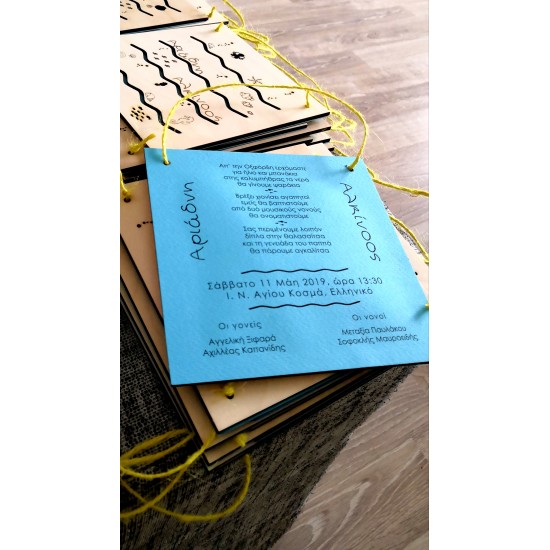 Αριάδνη
Αλκίνοος
Απ' την Οξφόρδη ερχόμαστε
για ήλιο και μπανάκια
στης κολυμπήθρας το νερό
θα γίνουμε ψαράκια
Βρέξει χιονίσει αγαπητοί
εμείς θα βαπτιστούμε
από δυο μουσικούς νονούς
θα ονοματιστούμε
Σας περιμένουμε λοιπόν
δίπλα στην θαλασσίτσα
και τη γενειάδα του παππά
θα πάρουμε αγκαλίτσα
Αριάδνη
Αλκίνοος
Σάββατο 11 Μάη 2019, ώρα 13:30
Ι. Ν. Αγίου Κοσμά, Ελληνικό
Οι γονείς
Αγγελική Ξιφαρά
Αχιλλέας Καπανίδης
Οι νονοί
Μεταξία Παυλάκου
Σοφοκλής Μαυροειδής